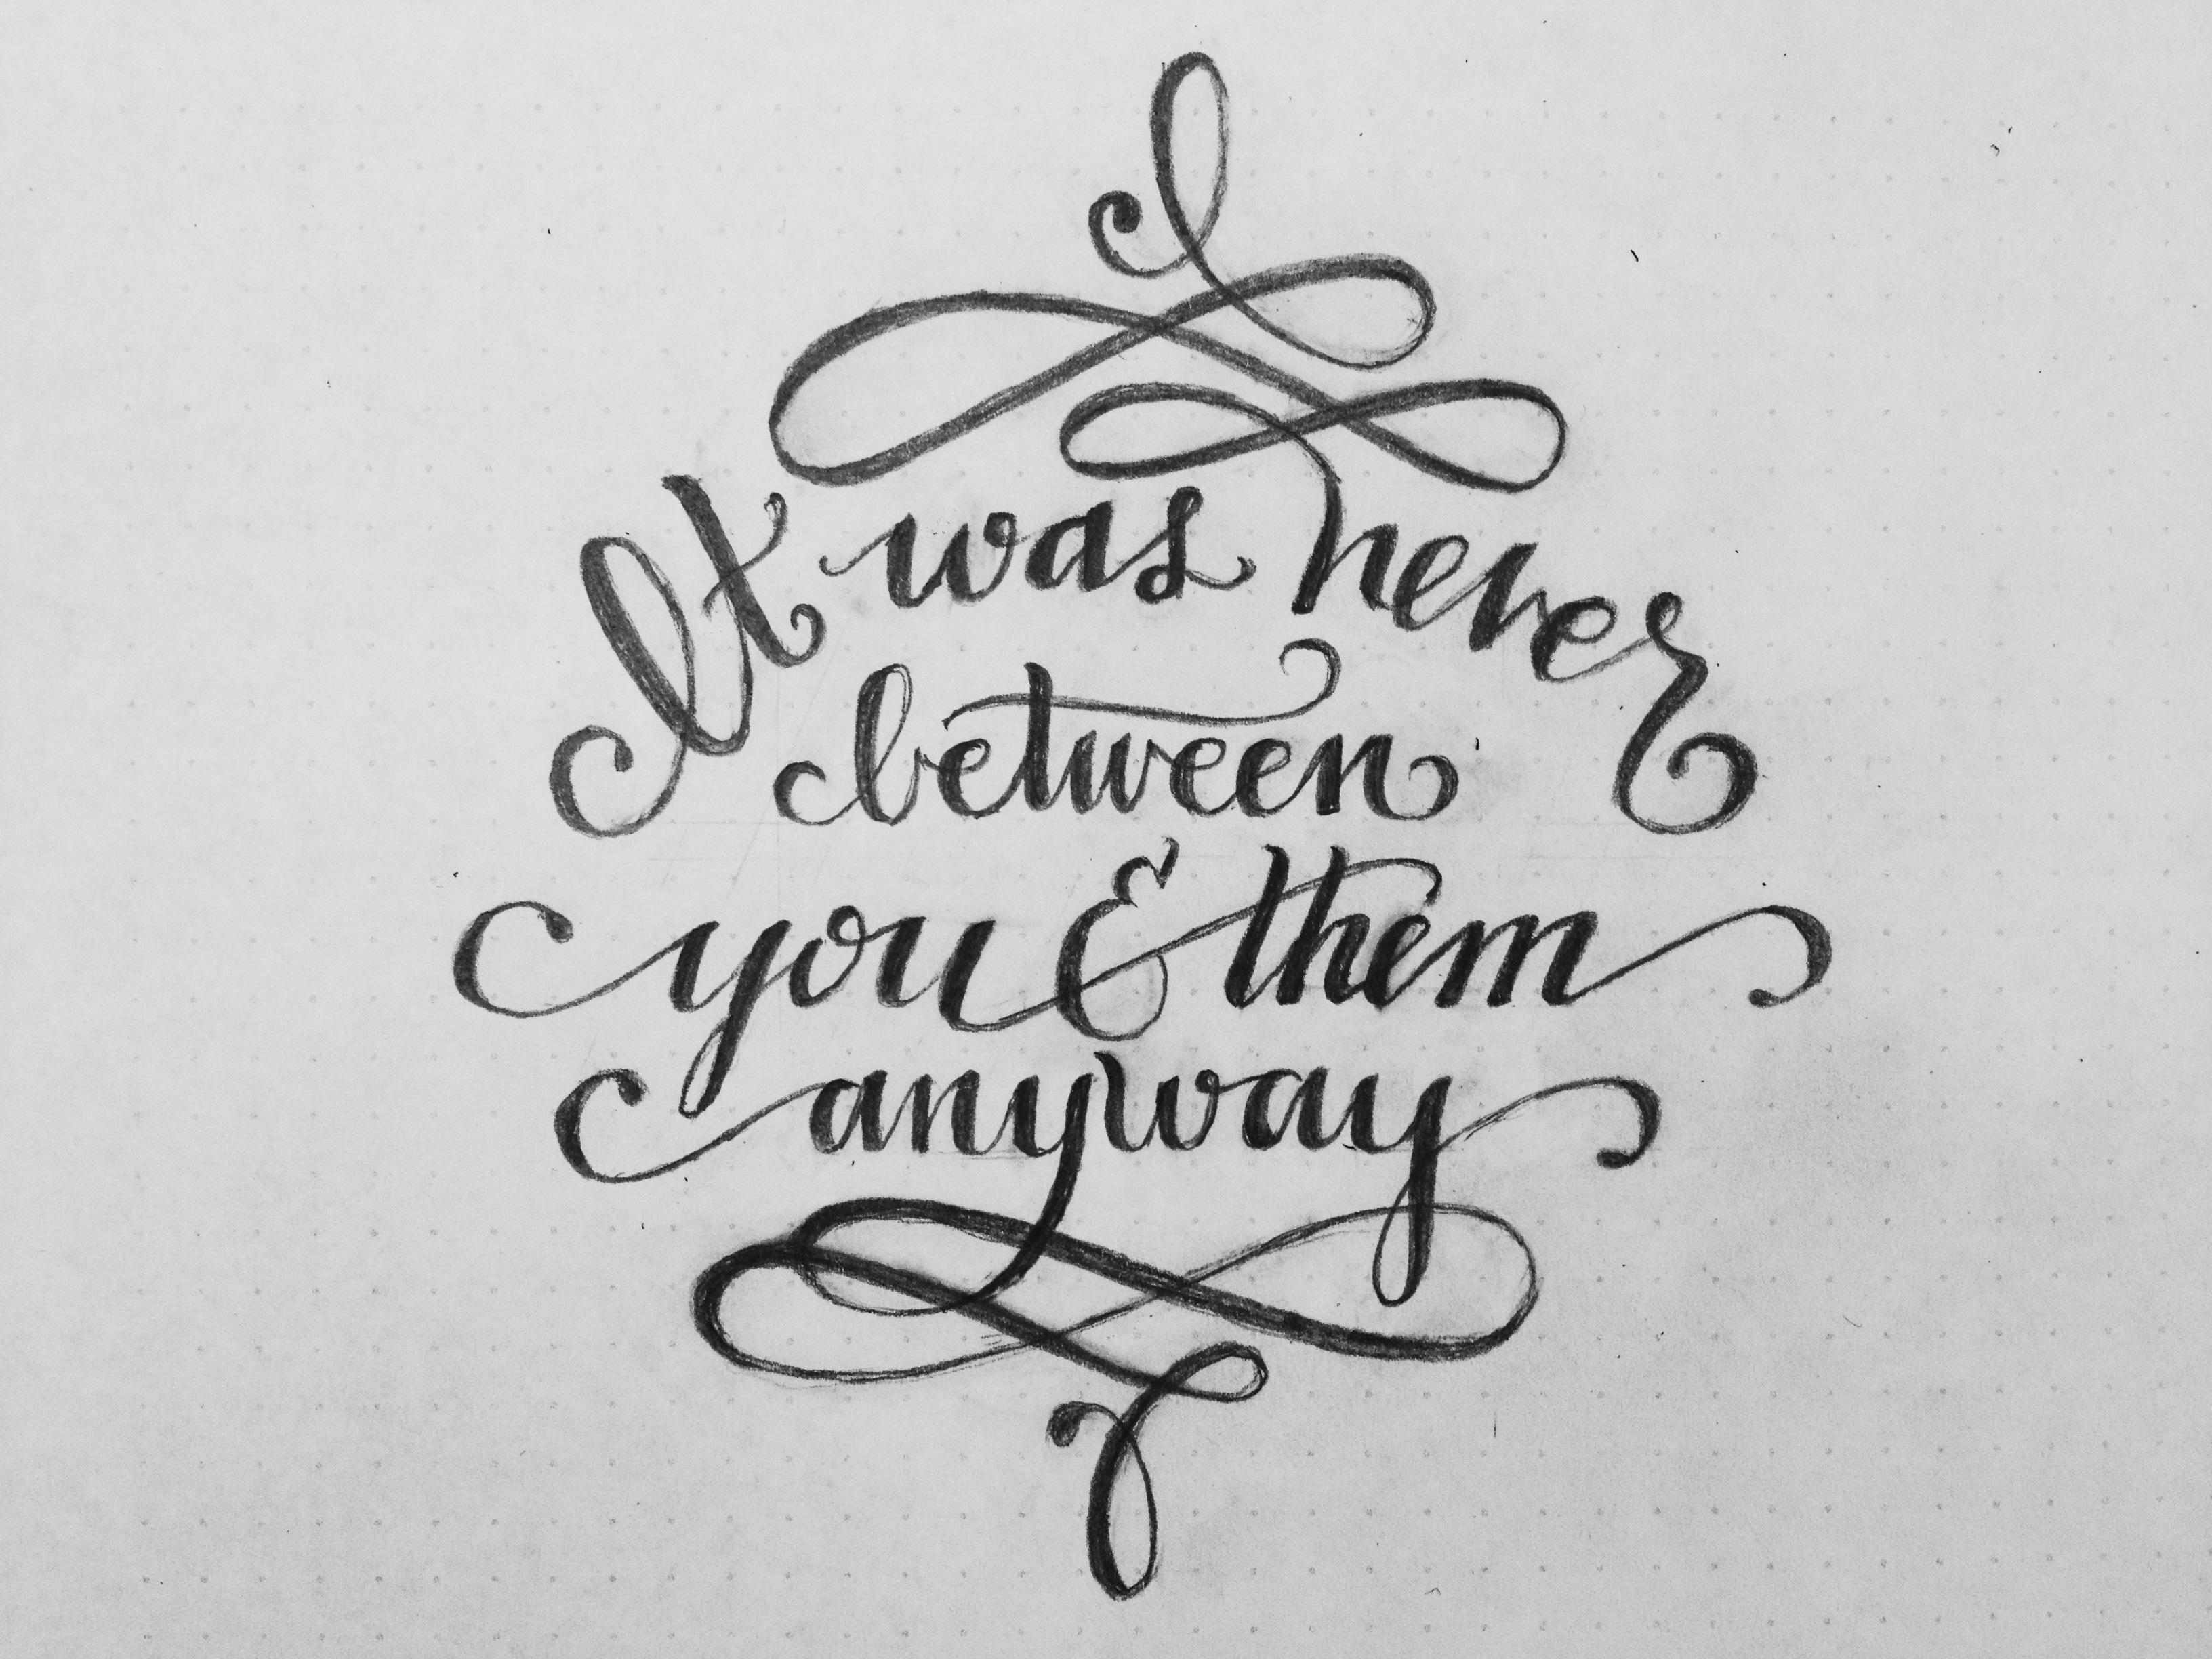 It was never
between
you & them
anyway